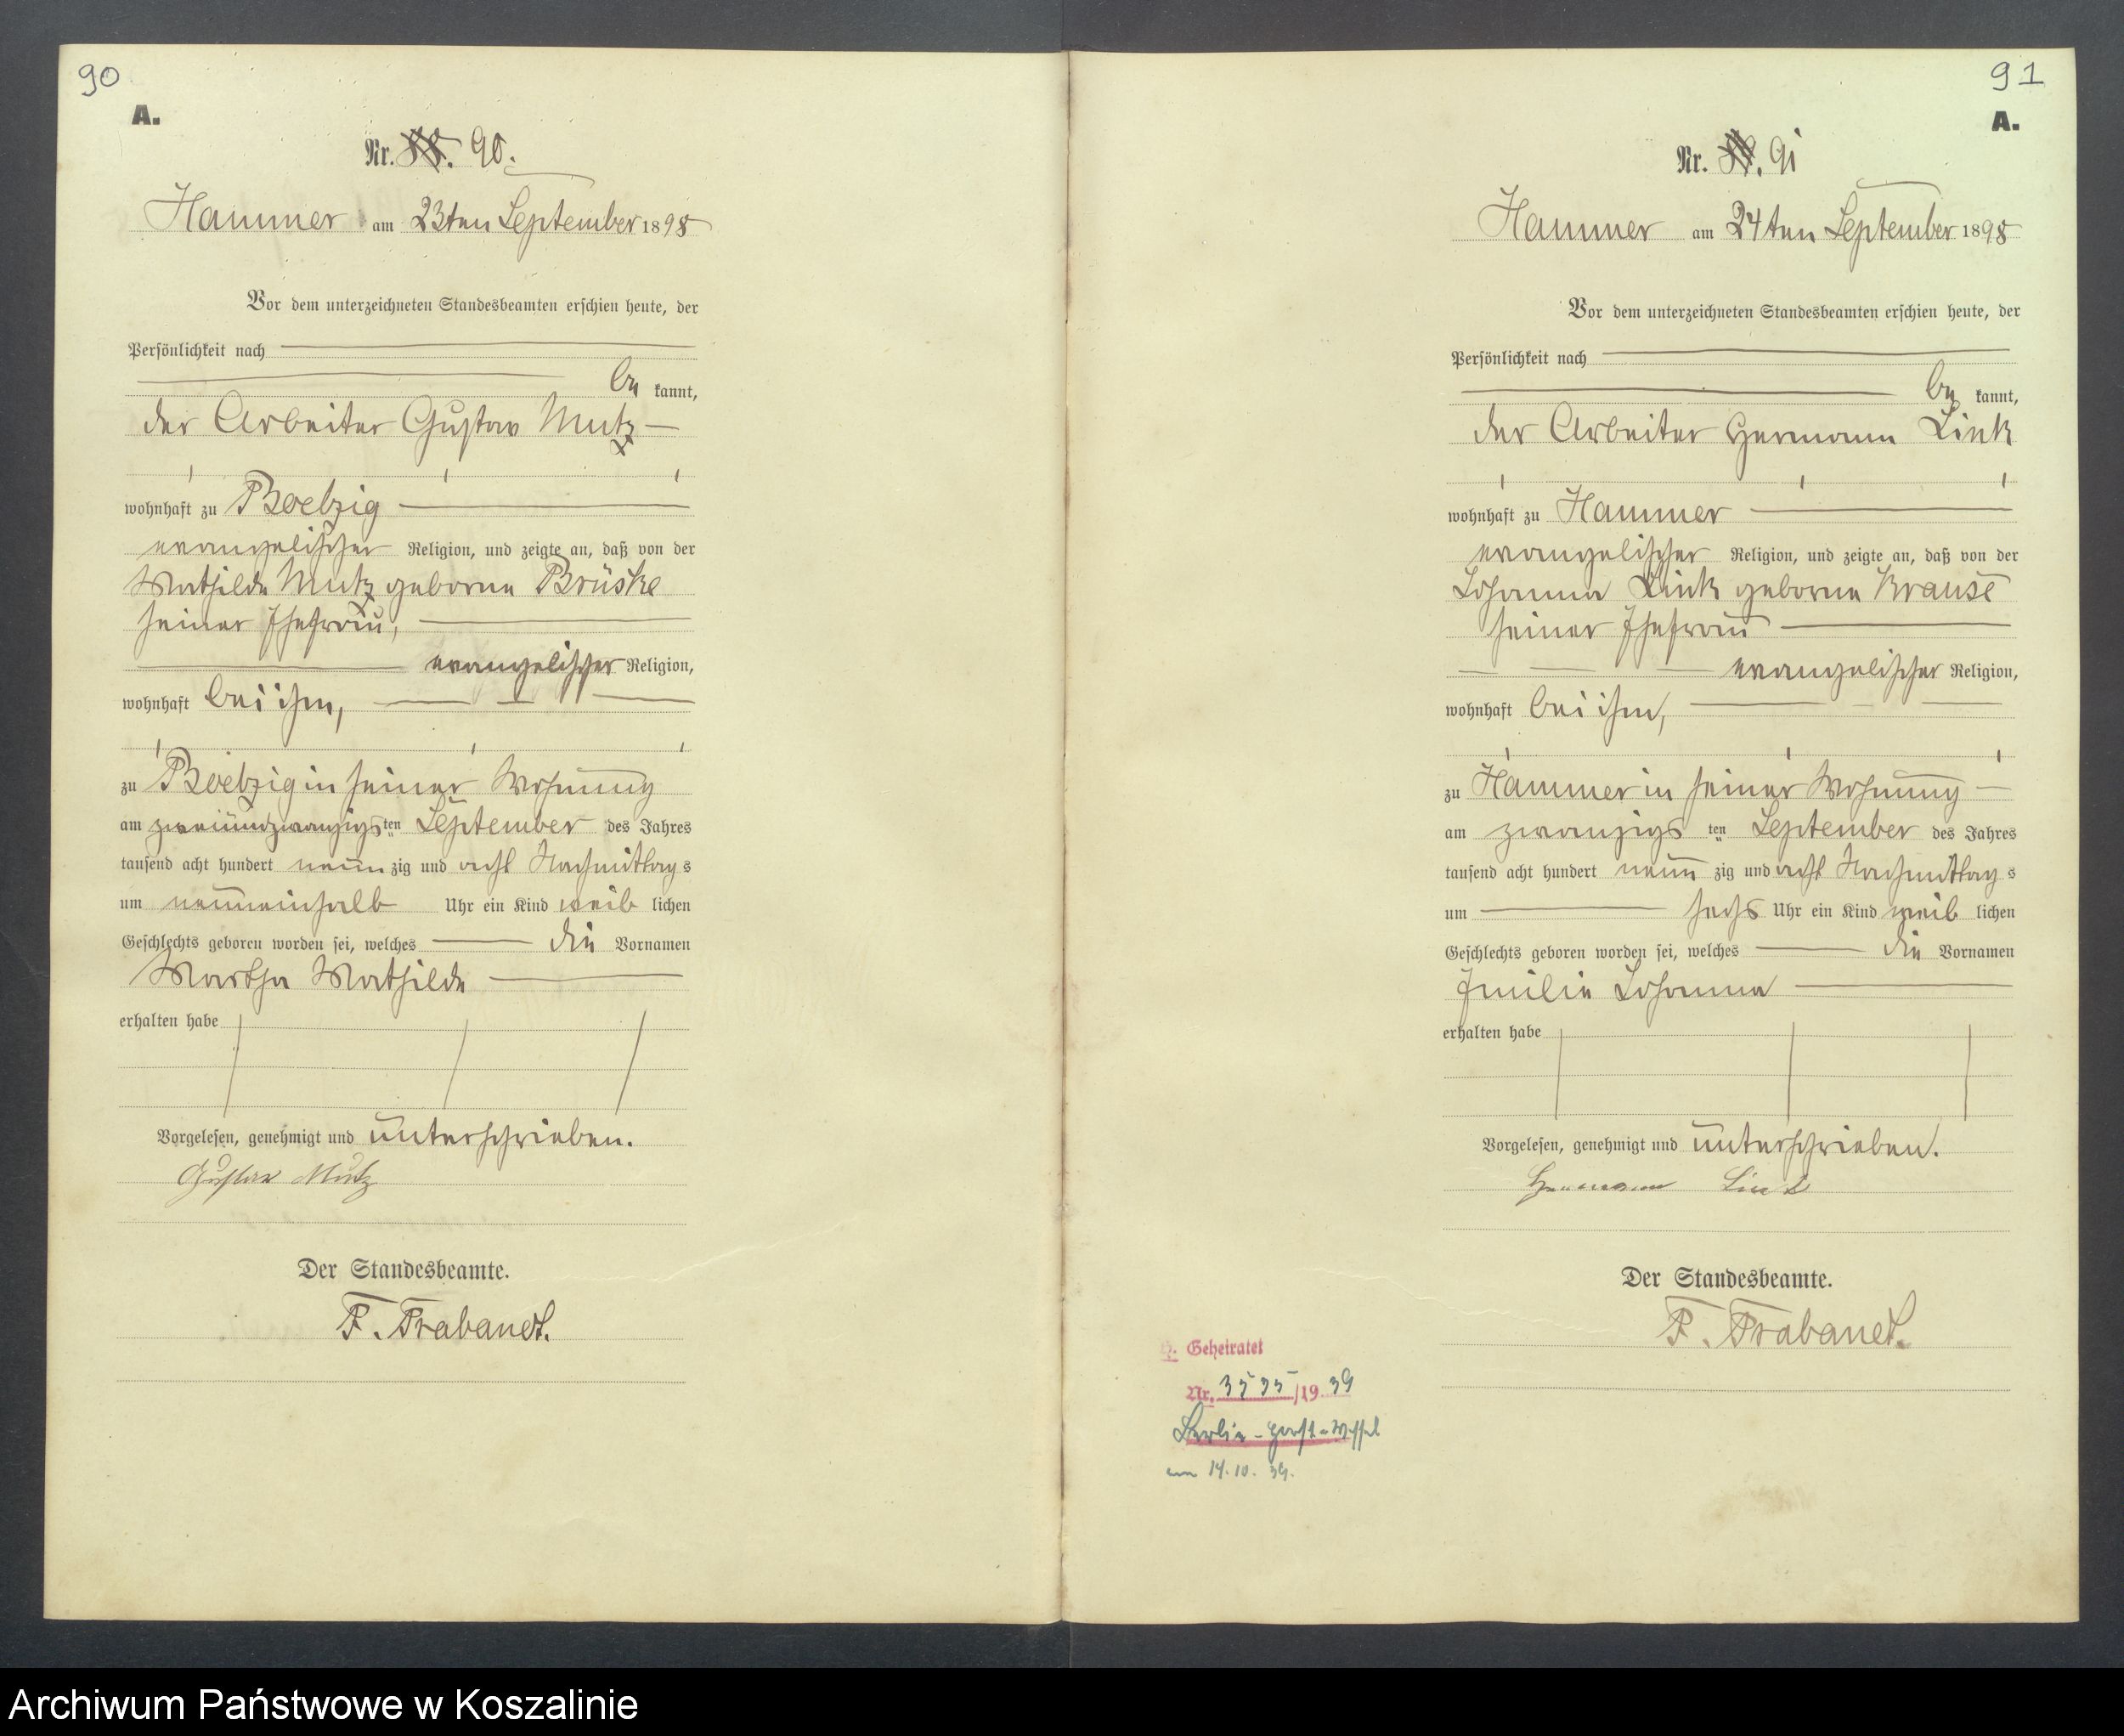 90
A.
Nr. 90.
Hammer am 23ten September 1898
Vor dem unterzeichneten Standesbeamten erschien heute, der
Persönlichkeit nach
be kannt,
der Arbeiter Gustav Mutz
wohnhaft zu Boelzig
evangelischer Religion, und zeigte an, daß von der
Mathilde Mutz geborne Brüske
seiner Ehefrau,
evangelischer Religion,
wohnhaft bei ihm,
zu Boelzig in seiner Wohnung
am zweiundzwanzigs ten September des Jahres
tausend acht hundert neun zig und acht Nachmittag s
um neuneinhalb Uhr ein Kind weib lichen
Geschlechts geboren worden sei, welches die Vornamen
Martha Mathilde
erhalten habe
Vorgelesen, genehmigt und unterschrieben.
Gustav Mutz
Der Standesbeamte.
F. Trabandt.
91
A.
Nr. 91
Hammer am 24ten September 1898
Vor dem unterzeichneten Standesbeamten erschien heute, der
Persönlichkeit nach
be kannt,
der Arbeiter Hermann Link
wohnhaft zu Hammer
evangelischer Religion, und zeigte an, daß von der
Johanna Link geborne Krause
seiner Ehefrau
evangelischer Religion,
wohnhaft bei ihm,
zu Hammer in seiner Wohnung
am zwanzigs ten September des Jahres
tausend acht hundert neun zig und acht Nachmittag s
um sechs Uhr ein Kind weib lichen
Geschlechts geboren worden sei, welches die Vornamen
Emilie Johanna
erhalten habe
Vorgelesen, genehmigt und unterschrieben.
Hermann Link
Der Standesbeamte.
F. Trabandt.
Geheiratet
Nr. 3535/1939
Berlin-Horst-Wessel
am 14.10.39.
Archiwum Państwowe w Koszalinie